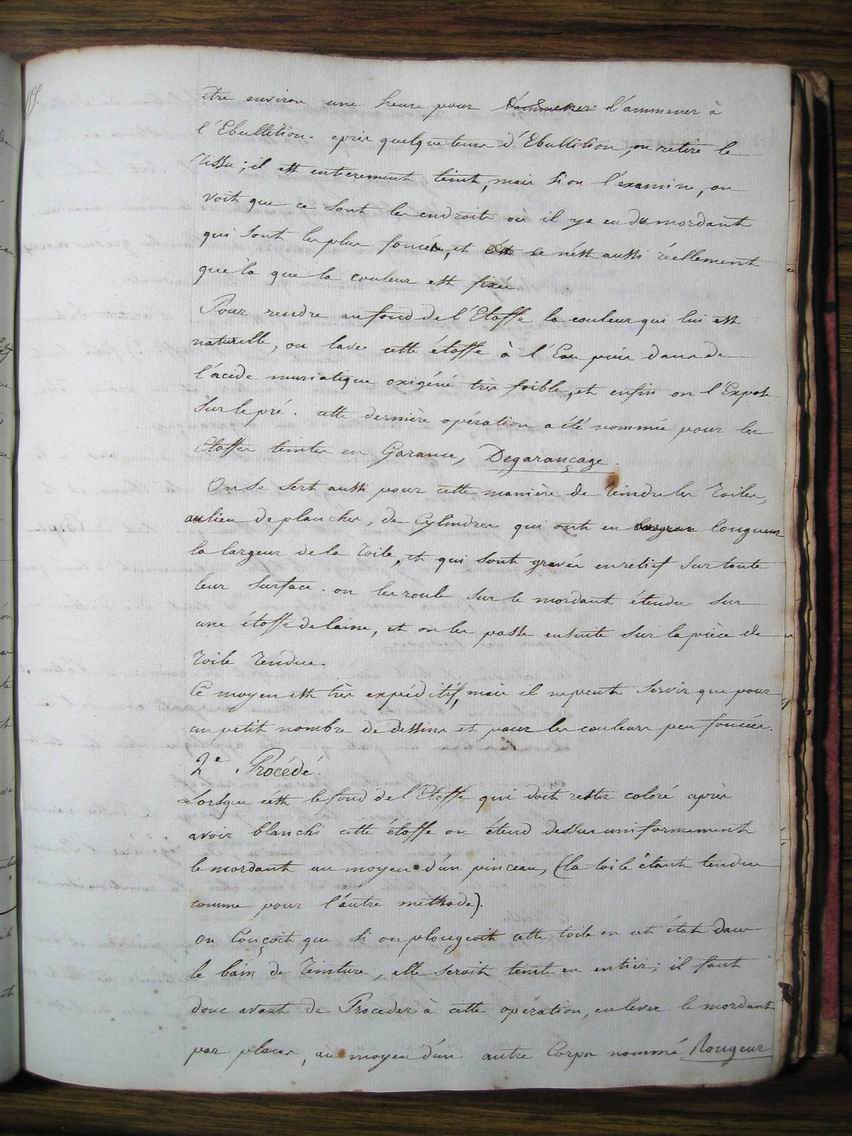 être environ une heure pour l'ammener à
l'Ebullition. après quelque tems d'Ebullition, on retire le
tissu; il est entierement teint, mais si on l'examine, on
voit que ce sont les endroits où il y a eu du mordant
qui sont les plus foncés, et ce n'est aussi réellement
que la que la couleur est fixée.
Pour rendre au fond de l'Etoffe la couleur qui lui est
naturelle, on lave cette étoffe à l'Eau puis dans de
l'acide muriatique oxigéné très foible, et enfin on l'Expose
sur le pré. cette dernière opération a été nommée pour les
Etoffes teintes en Garance, Degarançage.
On se sert aussi pour cette manière de teindre les Toiles,
au lieu de planches, de Cylindres qui ont en longueur
la largeur de la Toile, et qui sont gravés en relief sur toute
leur surface. on les roule sur le mordant étendu sur
une étoffe de laine, et on les passe ensuite sur la pièce de
Toile Tendue.
Ce moyen est très expéditif, mais il ne peut servir que pour
un petit nombre de dessins et pour les couleurs peu foncées.
2e. Procédé.
Lorsque c'est le fond de l'Etoffe qui doit rester coloré après
avoir blanchi cette étoffe on étend dessus uniformement
le mordant au moyen d'un pinceau, (la toile étant tendue
comme pour l'autre methode).
on Conçoit que si on plongeoit cette toile en cet état dans
le bain de Teinture, elle seroit teinte en entier; il faut
donc avant de Procéder à cette operation, enlever le mordant
par places, au moyen d'un autre Corps nommé Rongeur